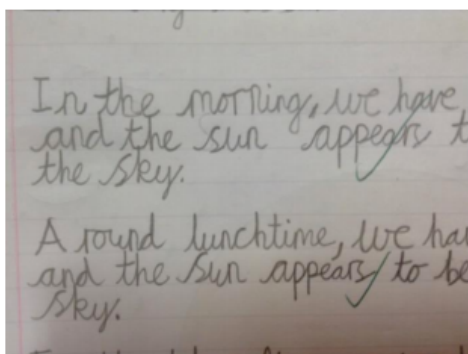 In the morning, we have
and the sun appears t
the sky.
A round lunchtime, we ha
and the sun appears to be
sky.